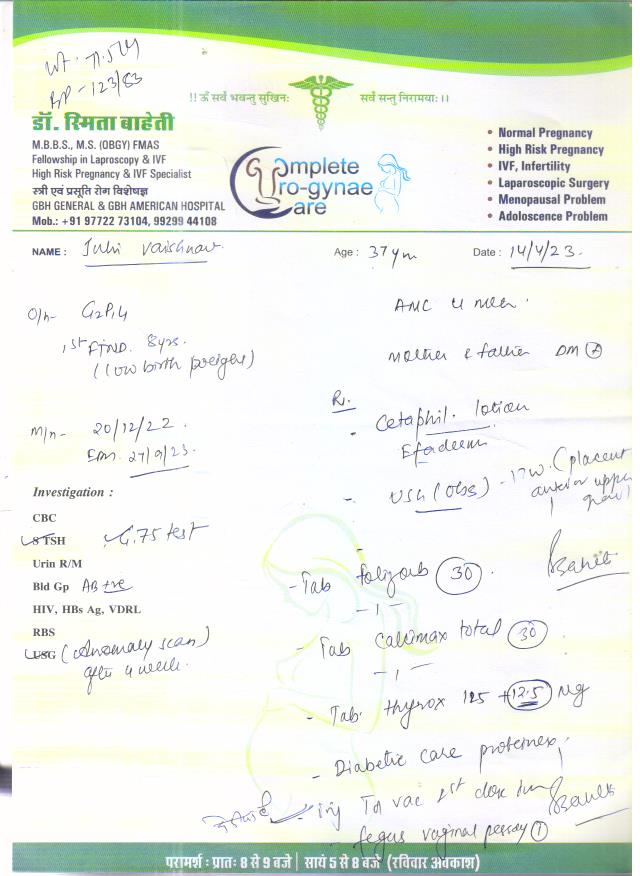 Wt - 71.5 kg
BP - 123/83
!! ॐ सर्वे भवन्तु सुखिनः सर्वे सन्तु निरामयाः !!
डॉ. स्मिता बाहेती
M.B.B.S., M.S. (OBGY) FMAS
Fellowship in Laproscopy & IVF
High Risk Pregnancy & IVF Specialist
स्त्री एवं प्रसूति रोग विशेषज्ञ
GBH GENERAL & GBH AMERICAN HOSPITAL
Mob.: +91 97722 73104, 99299 44108
Complete
Uro-gynae
Care
• Normal Pregnancy
• High Risk Pregnancy
• IVF, Infertility
• Laparoscopic Surgery
• Menopausal Problem
• Adoloscence Problem
NAME : Juhi Vaishnav Age : 37 yrs Date : 14/4/23.
O/h- G2P1L1
1st FTND. 8yrs.
(low birth weight)
M/h- 20/12/22
27/9/23.
ANC 4 week
Mother & father DM
Rx.
- Cetaphil. lotion
- USG (Obs) - 17w. (placenta
anterior upper
Investigation :
CBC
S TSH G.75 test
Urin R/M
Bld Gp AB+ve
HIV, HBs Ag, VDRL
RBS
USG (Anomaly scan)
after 4 week.
- Tab 30
-1-
- Tab Calcimax total 30
-1-
- Tab. thyrox 125 + 12.5 Mg
- Diabetic care proteinex
- inj Td vac 1st dose
vaginal pessary 1
परामर्श : प्रातः 8 से 9 बजे | सायं 5 से 8 बजे (रविवार अवकाश)